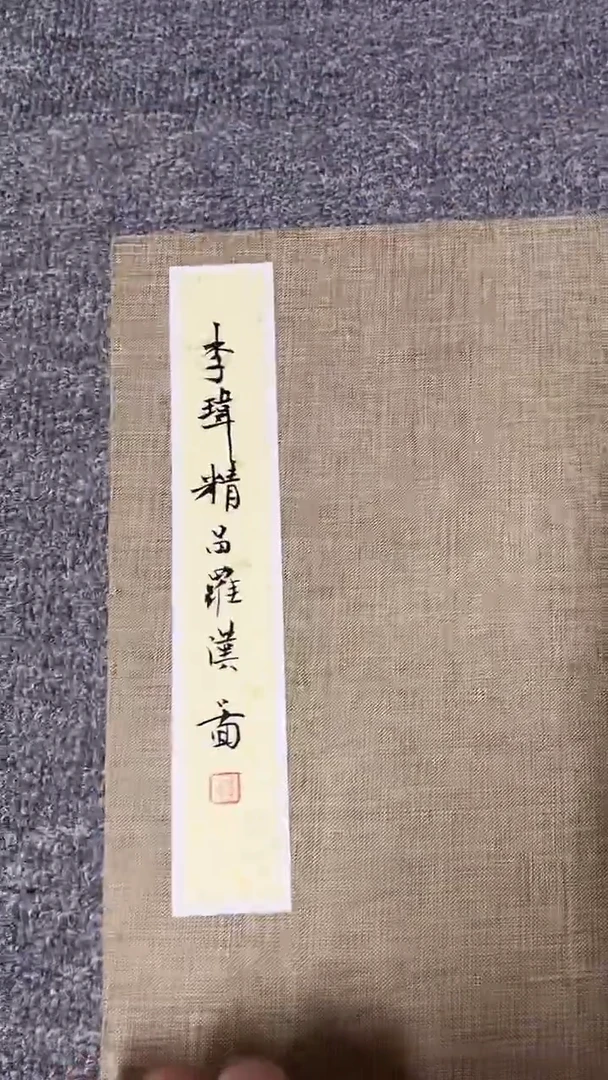 李瑋精品羅漢啚